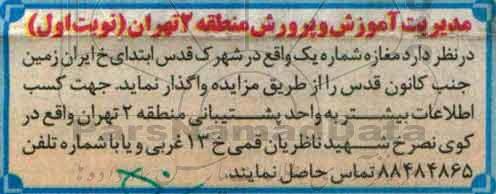 مدیریت آموزش و پرورش منطقه ۲ تهران (نوبت اول)
در نظر دارد مغازه شماره یک واقع در شهرک قدس ابتدای خ ایران زمین
جنب کانون قدس را از طریق مزایده واگذار نماید. جهت کسب
اطلاعات بیشتر به واحد پشتیبانی منطقه ۲ تهران واقع در
کوی نصر خ شهید ناظریان قمی خ ۱۳ غربی و یا با شماره تلفن
۸۸۴۸۴۸۶۵ تماس حاصل نمایند.
ParsNamadData